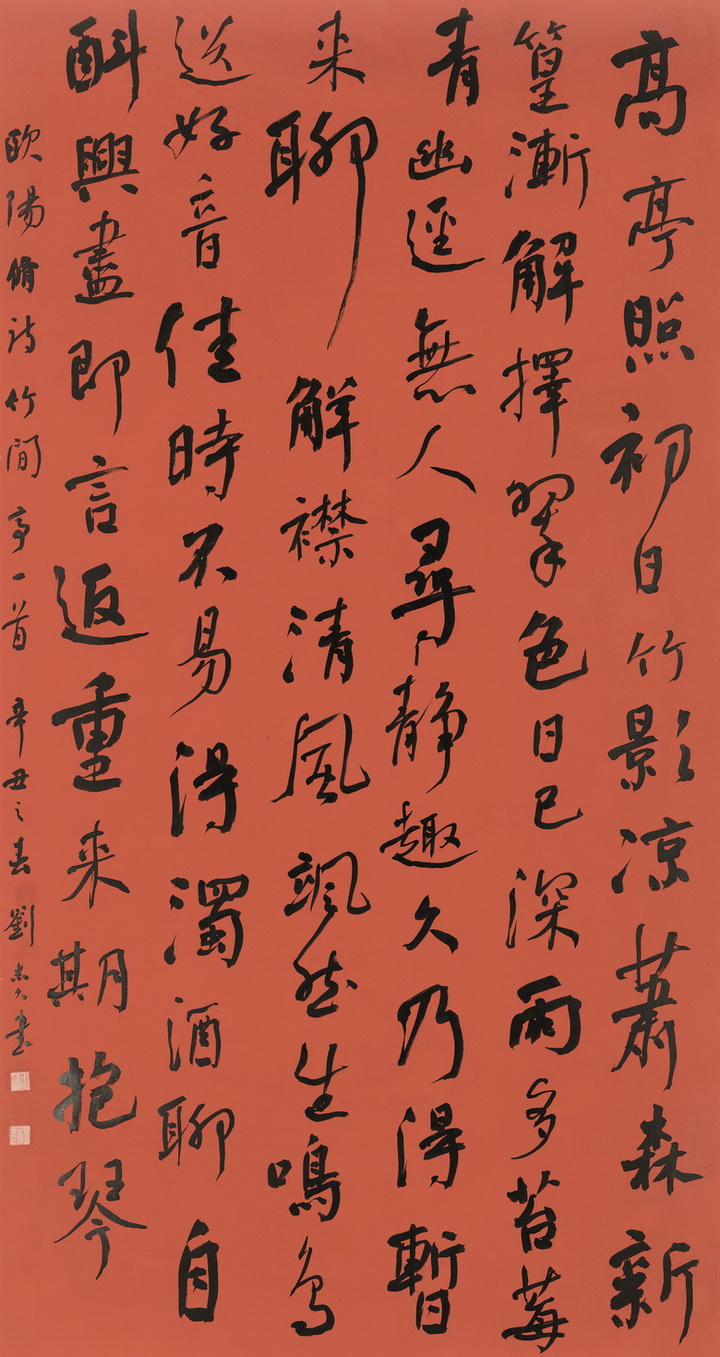 高亭照初日竹影凉蕭森新
篁漸解擇翠色日已深雨多苔莓
青幽逕無人尋靜趣久乃得暫
来聊解襟清風颯然生鳴鳥
送好音佳時不易得濁酒聊自
酙興盡即言返重来期抱琴
歐陽脩詩竹間亭一首 辛丑之春劉書